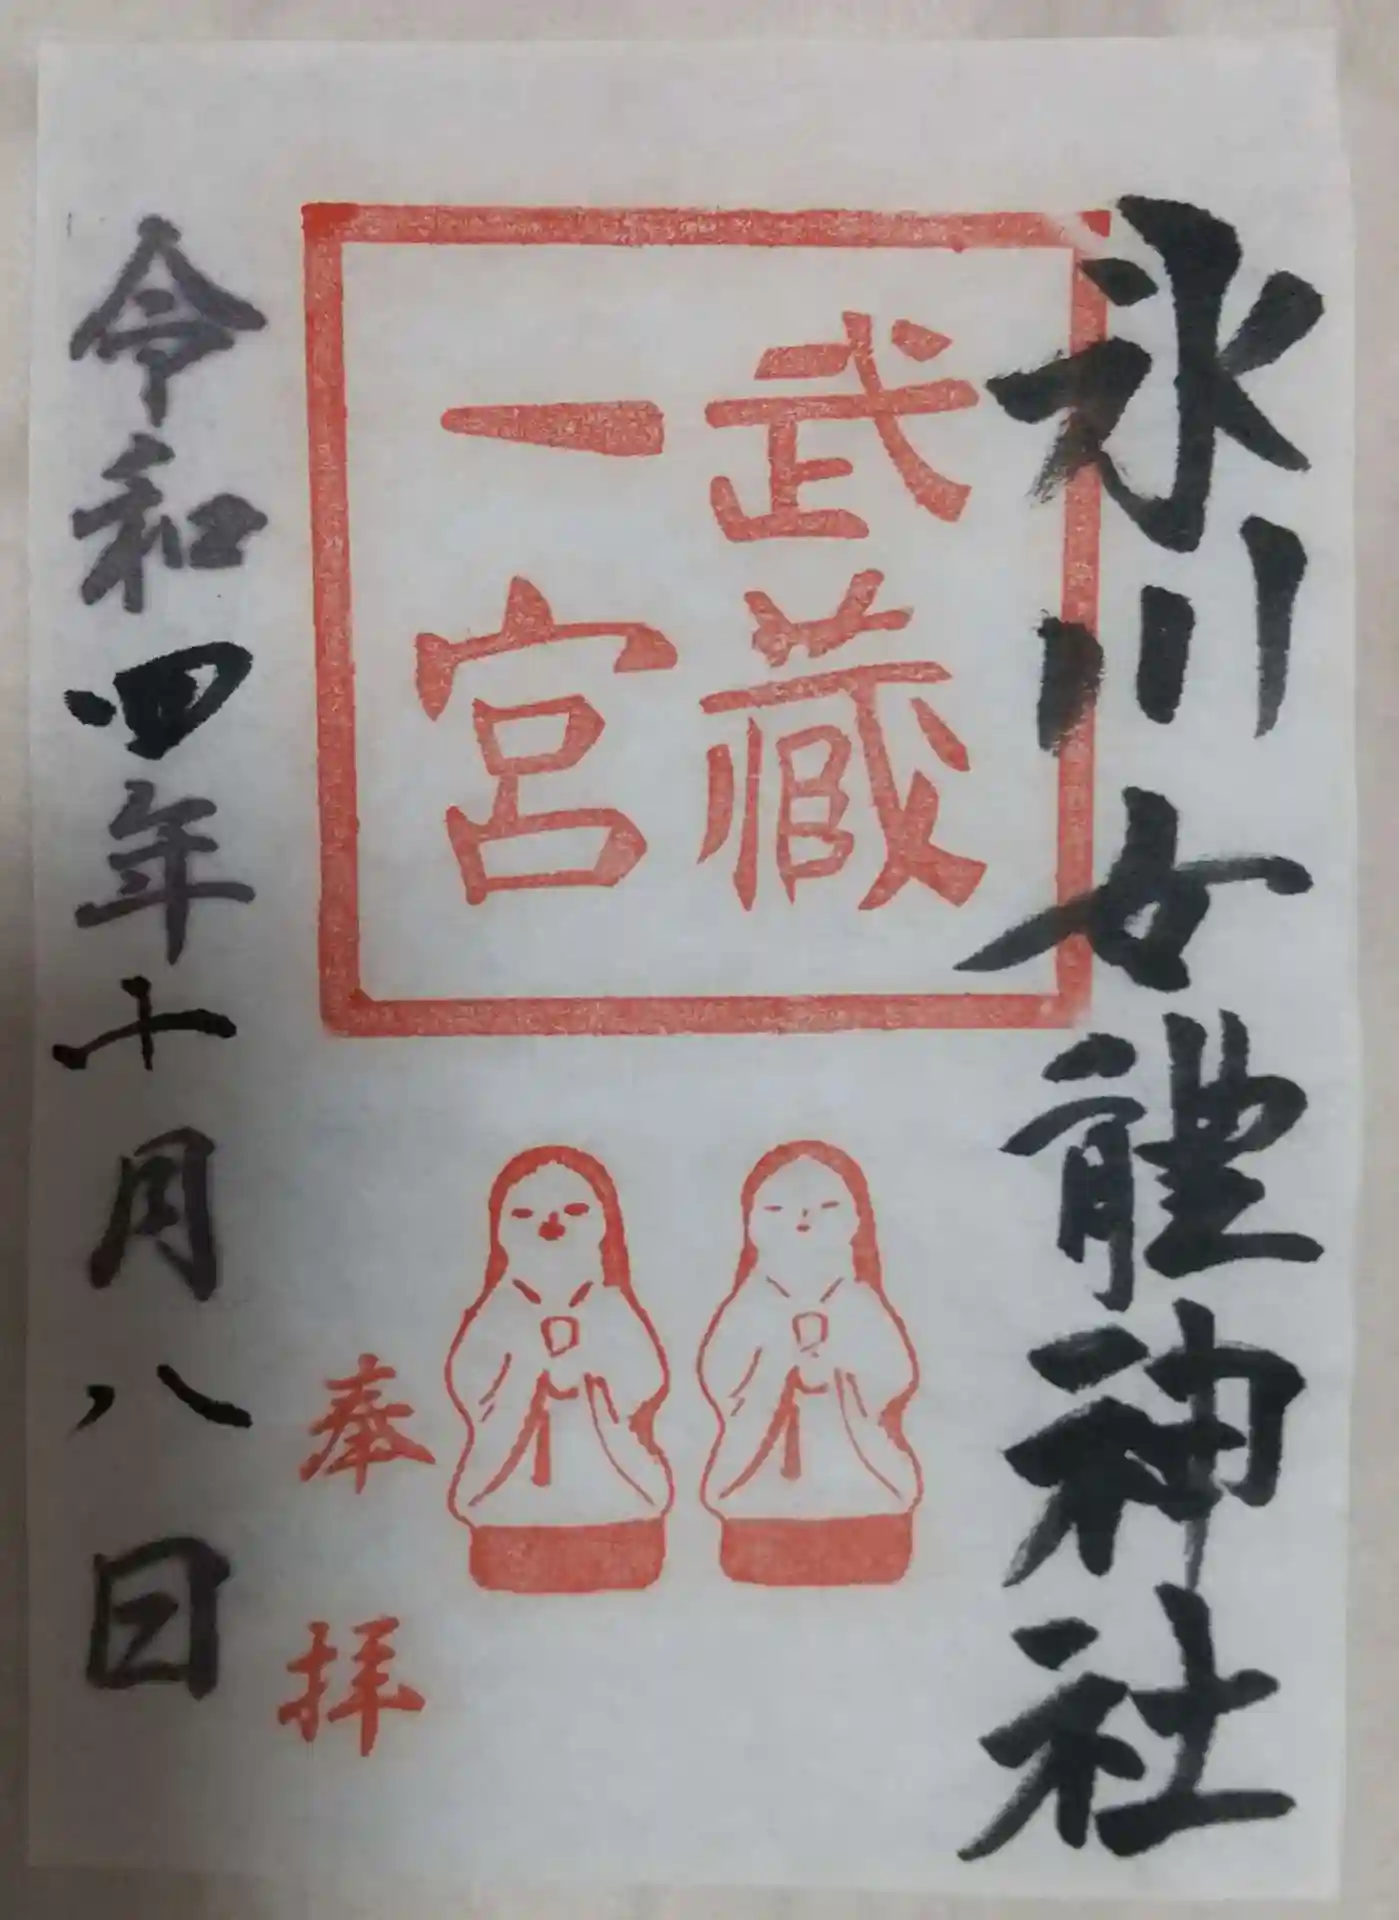 氷川女體神社
武蔵
一宮
奉拝
令和四年十月八日